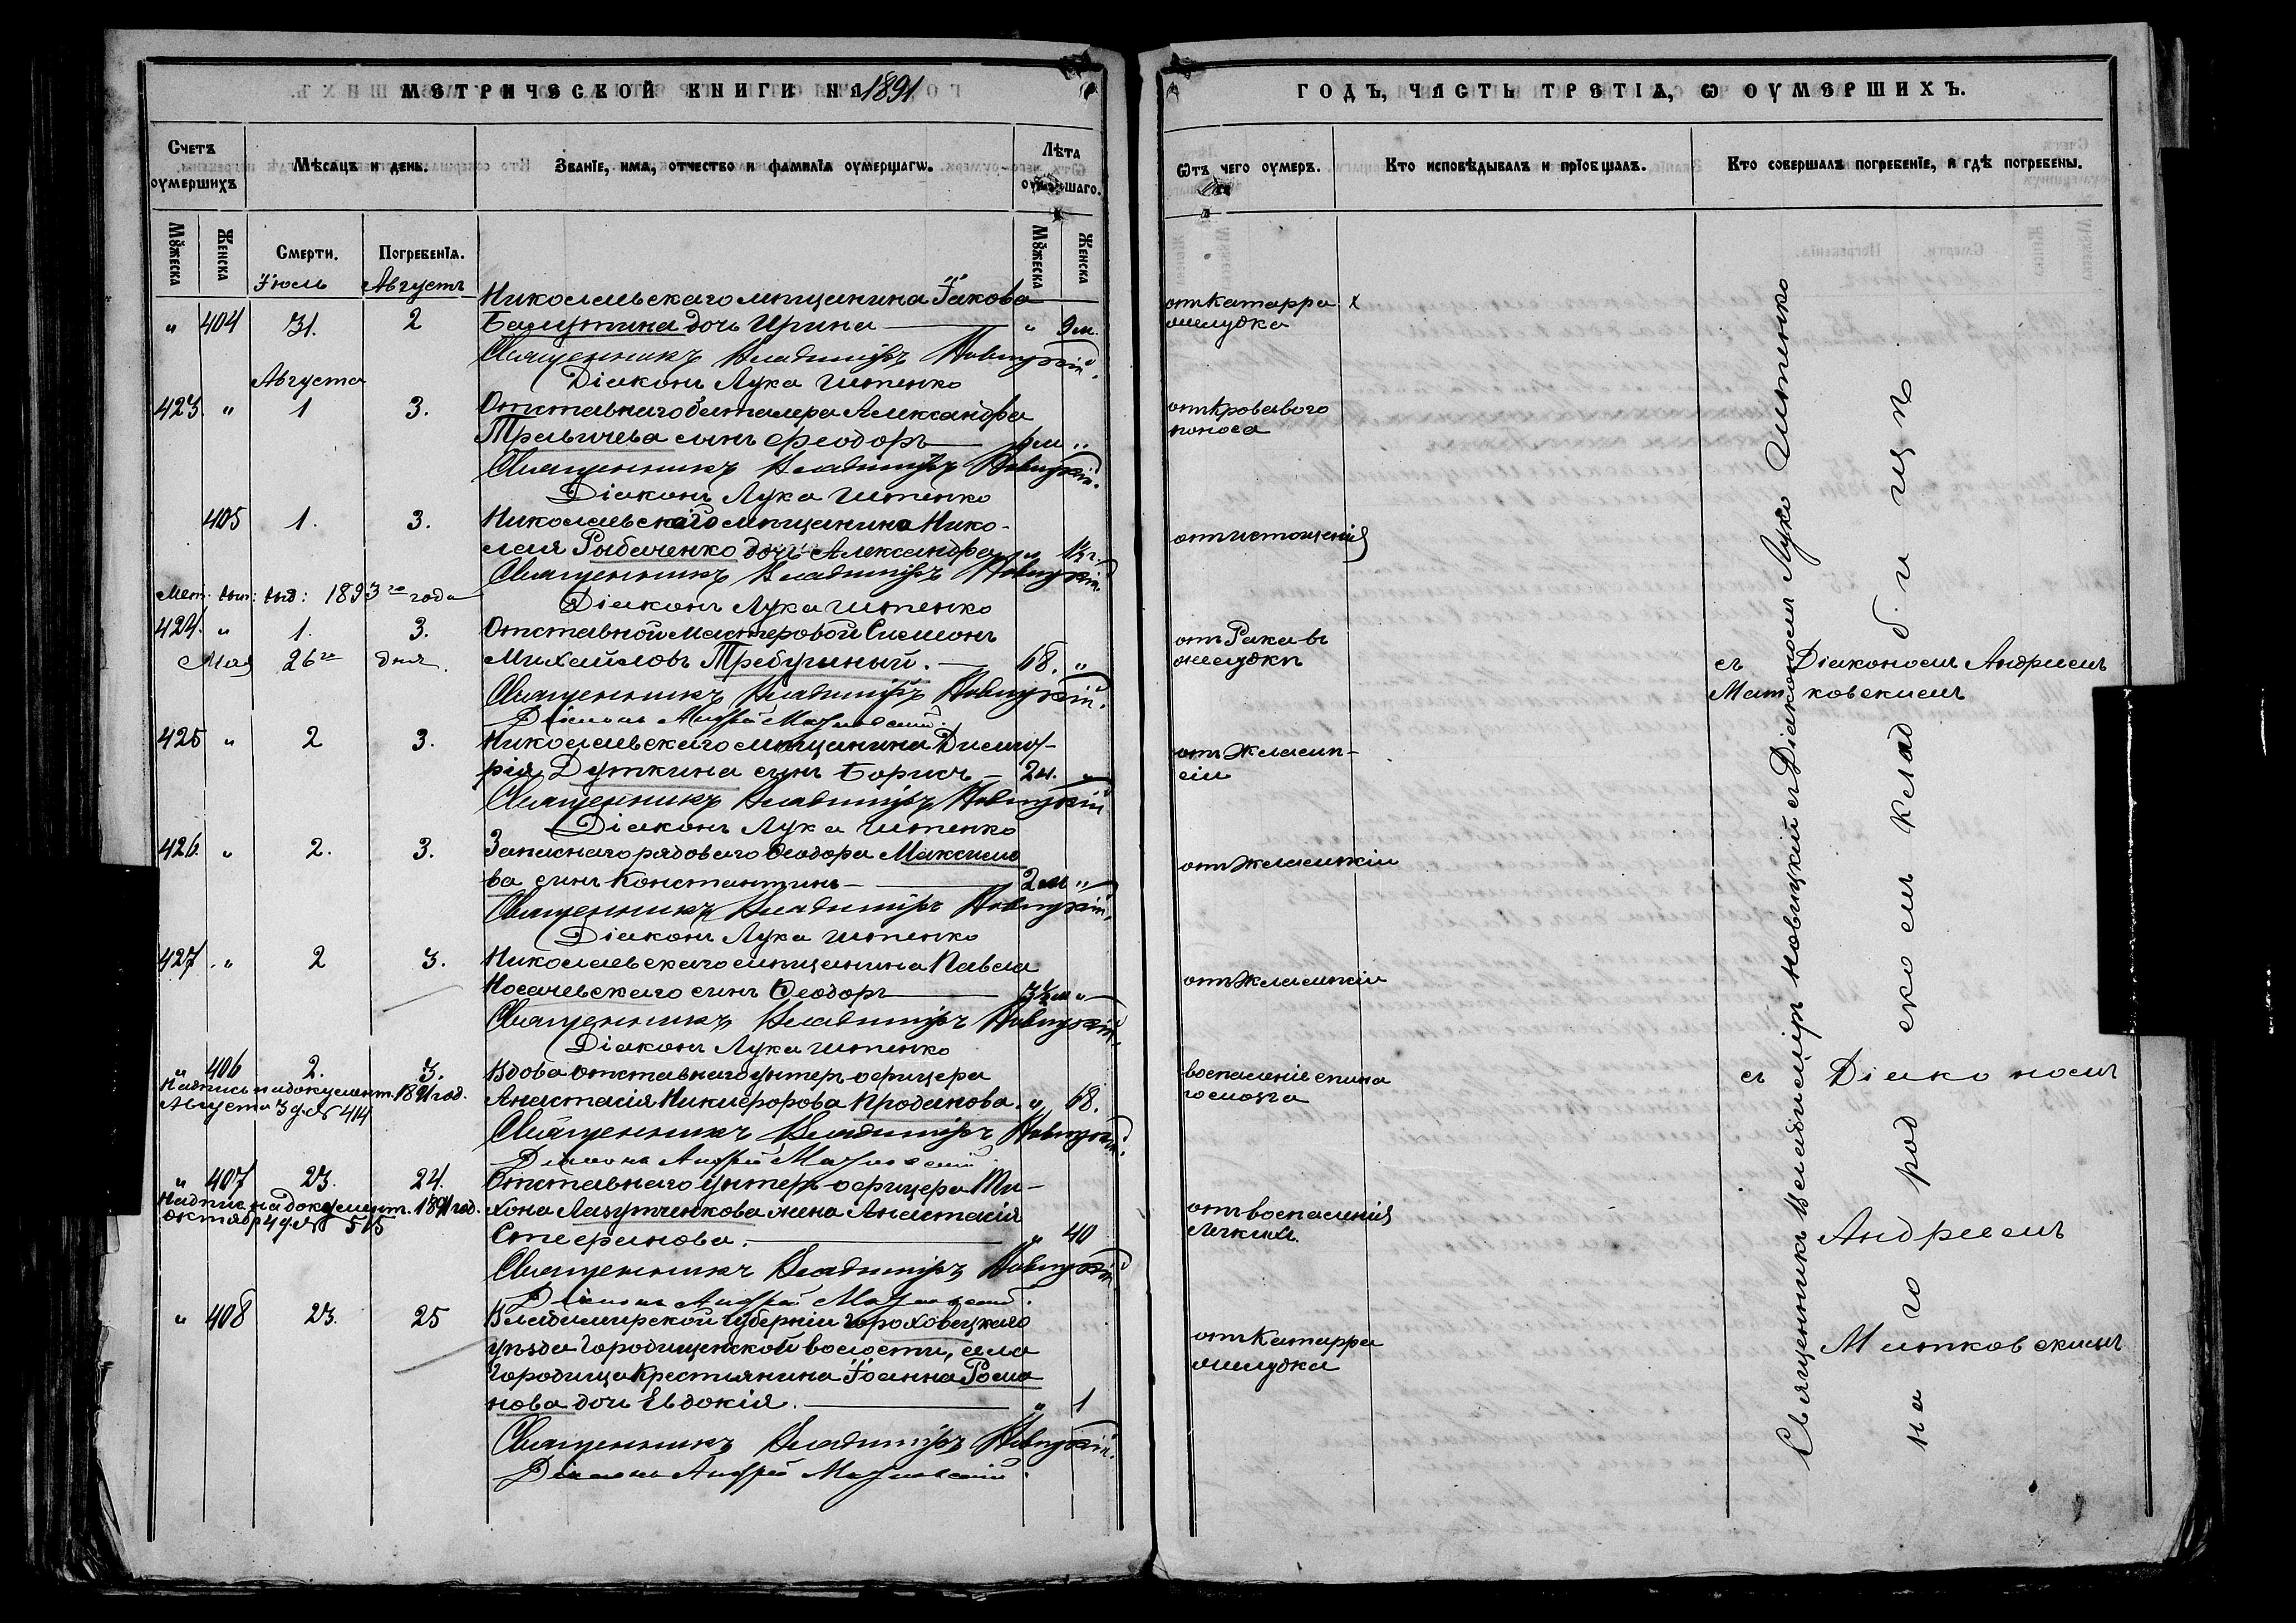 МЕТРИЧЕСКОЙ КНИГИ НА 1891
Счетъ оумершихъ
Мѣсяцъ и день.
Званіе, имя, отчество и фамилія оумершагѡ.
Лѣта оумершаго.
Мужеска
Женска
Смерти.
Погребенія.
Мужеска
Женска
Іюль
Августъ
Николаевскаго мѣщанина Іакова
" 404 31. 2 дочь Ирина " 9 м.
Священникъ Владиміръ Новицкій.
Діаконъ Лука Штенко
Августа
423. " 1 3. Отставнаго баталера Александра
сынъ Феодоръ "
Священникъ Владиміръ Новицкій.
Діаконъ Лука Штенко
405 1. 3. Николаевскаго мѣщанина Нико-
лая Рыбаченко дочь Александра
Священникъ Владиміръ Новицкій.
Мет. вып. выд: 1893 го года
Діаконъ Лука Штенко
424. " 1. 3. Отставной мастеровой Симеонъ
Мая 26 го дня. Михайловъ Требушный. 68. "
Священникъ Владиміръ Новицкій.
Діаконъ Андрей Матковскій.
425 " 2 3. Николаевскаго мѣщанина Димит-
рія Дуткина сынъ Борисъ "
Священникъ Владиміръ Новицкій
Діаконъ Лука Штенко
426. " 2. 3. Запаснаго рядоваго Феодора Максимо
ва сынъ Константинъ 2 м "
Священникъ Владиміръ Новицкій.
Діаконъ Лука Штенко
427. " 2 3. Николаевскаго мѣщанина Павла
Носачевскаго сынъ Феодоръ 3½ м "
Священникъ Владиміръ Новицкій.
Діаконъ Лука Штенко
" 406 2. 3. Вдова отставнаго унтеръ офицера
Надпись на документ. 1891 год.
Августа 3 д. № 414
Анастасія Никифорова Проданова. " 68.
Священникъ Владиміръ Новицкій.
Діаконъ Андрей Матковскій
" 407 23. 24. Отставнаго унтеръ-офицера Ти-
Надпис на документ. 1891 год.
октябр 4 д. № 515
хона Лазутченкова жена Анастасія
Стефанова. " 40
Священникъ Владиміръ Новицкій
Діаконъ Андрей Матковскій.
" 408 23. 25 Владимирской губерніи Гороховецкаго
уѣзда Городищенской волости, села
Городища крестьянина Іоанна Рома
нова дочь Евдокія. " 1
Священникъ Владиміръ Новицкій.
Діаконъ Андрей Матковскій.
ГОДЪ, ЧАСТЬ ТРЕТІЯ, Ѡ ОУМЕРШИХЪ.
Ѿтъ чего оумеръ.
Кто исповѣдывалъ и пріобщалъ.
Кто совершалъ погребеніе, и гдѣ погребены.
отъ катарра х
желудка
отъ кроваваго
поноса
отъ истощенія
отъ рака въ
желудкѣ
отъ эклямп-
сіи
отъ эклямпсіи
отъ эклямпсіи
воспаленіе спина
го мозга
отъ воспаленія
легкихъ.
отъ катарра
желудка
Священникъ Владиміръ Новицкій съ Діакономъ Лукою Штенко
съ Діакономъ Андреемъ
Матковскимъ
съ Діакономъ
Андреемъ
Матковскимъ
на городскомъ кладбищѣ